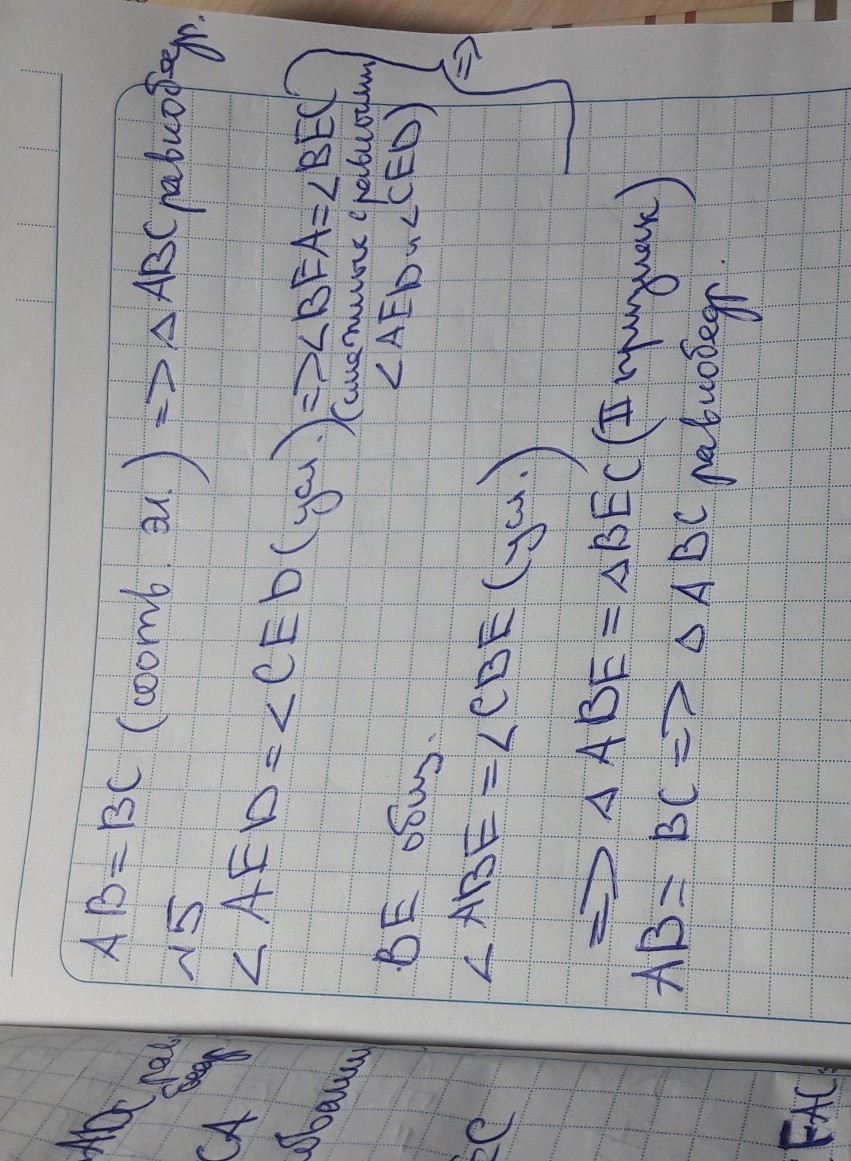 AB = BC (соотв. эл.) => △ ABC равнобедр.
√5
< AED = < CED (усл.) => < BEA = < BEC
(смежные с равными
< AED и < CED)
=>
BE общ.
< ABE = < CBE (усл.)
=> △ ABE = △ BEC (II признак)
AB = BC => △ ABC равнобедр.
CA
EC
FAC